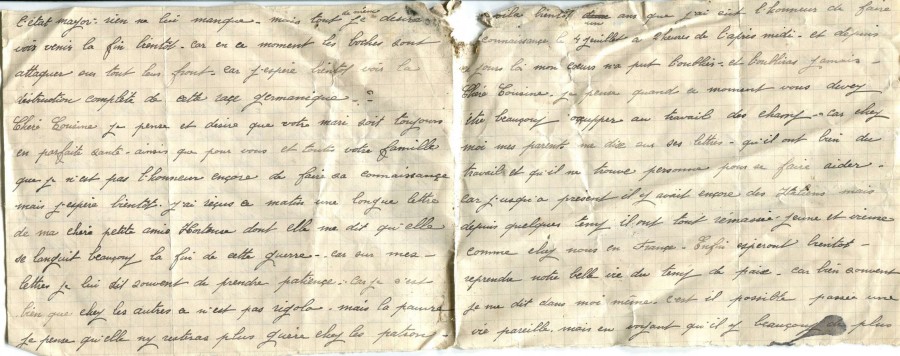 l'état major. rien ne lui manque. mais tout de même je désire
voir venir la fin bientot. car en ce moment les boches sont
attaquer sur tout leur front. car j'espère bientôt voir la
déstruction complète de cette rage germanique. ?
Chère Cousine je pense et desire que votre mari soit toujours
en parfaite santé. ainsi que pour vous et toute votre famille
que je n'est pas l'honneur ençore de faire sa connaissance
mais j'espère bientot. j'ai reçus ce matin une longue lettre
de ma chère petite amie Hortense dont elle me dit qu'elle
se languit beauçouq la fin de cette guerre. car sur mes
lettres je lui dit souvent de prendre patience. car je s'est
bien que chez les autres ce n'est pas rigolo. mais la pauvre
je pense qu'elle ny resteras plus guère chez les patrons.
voila bientot deux ans que j'ai eût l'honneur de faire
connaissance le 4 juillet a 2 heures de l'après midi. et depuis
ce jours là mon cœurs n'a put l'oublier. et l'oublieras jamais.
Chère Cousine. je pense quand ce moment vous devez
être beauçouq occupper au travails des champ. car chez
moi mes parents me dise sur ses lettres. qu'il ont bien du
travail et qu'il ne trouve personne pour se faire aider.
car j'usqu'a présent il y avait ençore des Italiens mais
depuis quelques temp il ont tout remassée. jeune et vieux
comme chez nous en France. Enfin esperont bientot
reprendre notre belle vie du temp de paix. car bien souvent
je me dit dans moi même. c'est il possible passer une
vie pareille. mais en voyant qu'il y beauçouq de plus